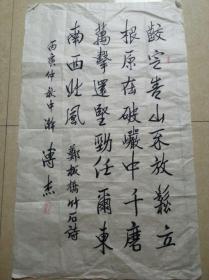 齩定青山不放鬆立
根原在破巖中千磨
萬擊還堅勁任爾東
南西北風 鄭板橋竹石詩
丙寅仲秋中澣 溥杰